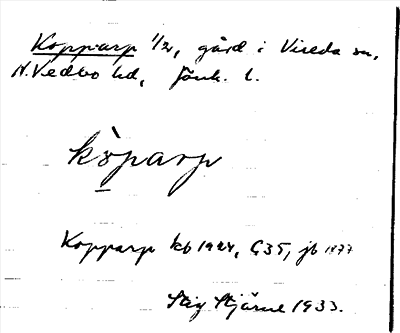 Kopparp 1/2, gård i Vireda sn,
N. Vedbo hd, Jönk. l.
kòparp
Kopparp kb 1924, G35, jb 1877
Stig Stjärne 1933.